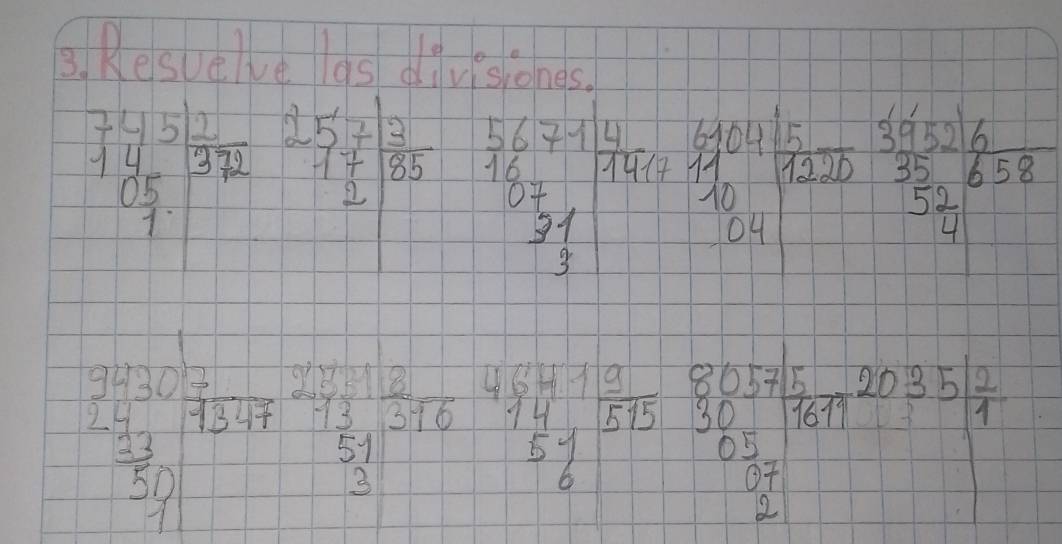 3. Resuelve las divisiones.
745 2 257 3 5671 4 6104 5 3952 6
14 372 17 85 16 1417 11 1220 35 658
05 2 07 10 52
1 31 04 4
3
9430 7 8 4641 9 8057 5 2035 2
24 1347 13 316 14 515 30 1611 1
33 51 51 05
50 3 6 07
1 2